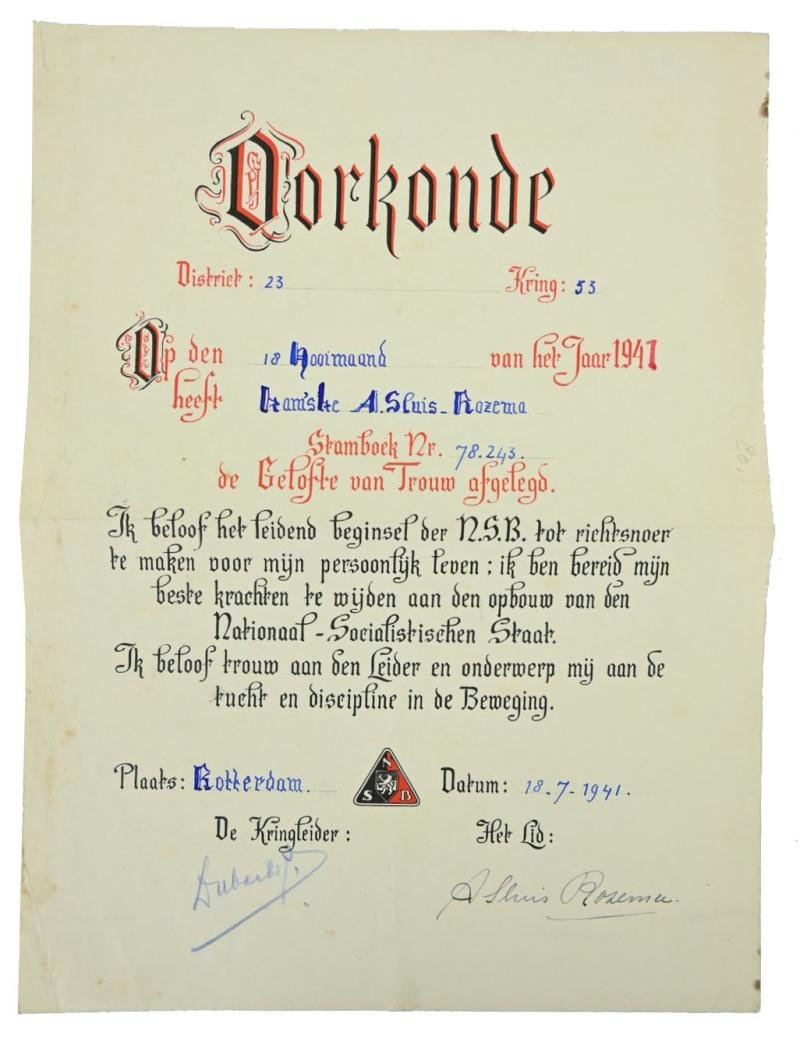 Oorkonde
District: 23 Kring: 53
Op den 18 Hooimaand van het Jaar 1941
heeft Kam'ske A. Sluis-Rozema
Stamboek Nr. 78.243.
de Gelofte van Trouw afgelegd.
Ik beloof het leidend beginsel der N.S.B. tot richtsnoer
te maken voor mijn persoonlijk leven; ik ben bereid mijn
beste krachten te wijden aan den opbouw van den
Nationaal-Socialistischen Staat.
Ik beloof trouw aan den Leider en onderwerp mij aan de
tucht en discipline in de Beweging.
Plaats: Rotterdam. NSB Datum: 18-7-1941.
De Kringleider: Het Lid:
A Sluis Rozema.
80,-